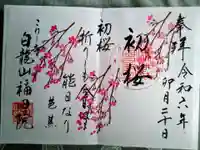 奉拝 令和六年
卯月二十日
初桜
初桜
折りしも今日は
能日なり
芭蕉
白龍山